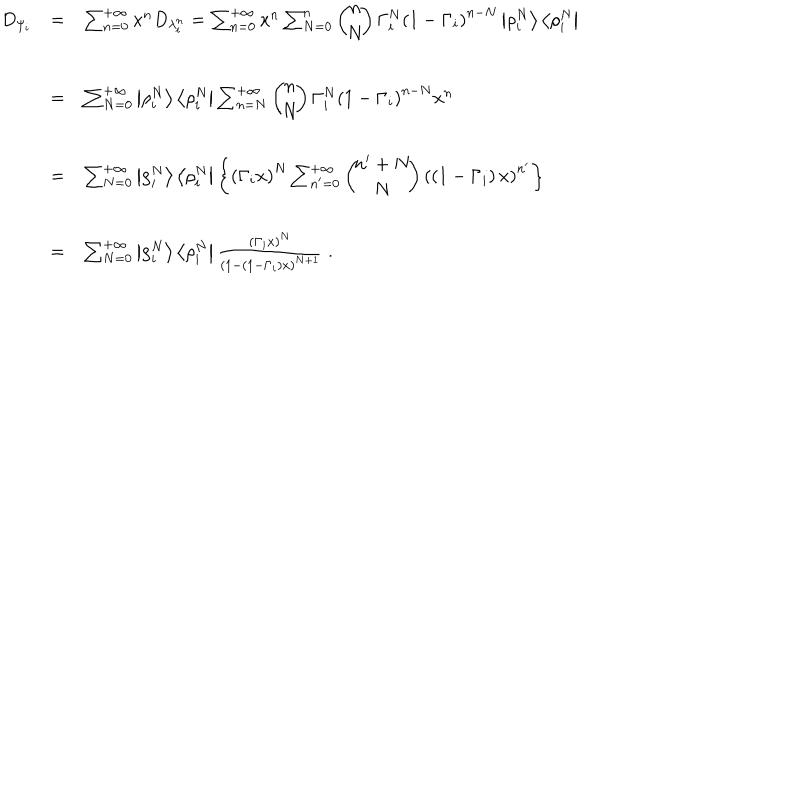 D_{\varphi_i} = \sum_{n=0}^{+\infty} x^n D_{\lambda_i^n} = \sum_{n=0}^{+\infty} x^n \sum_{N=0}^{n} \binom{n}{N} \Gamma_i^N (1 - \Gamma_i)^{n-N} |\rho_i^N\rangle \langle\rho_i^N|
= \sum_{N=0}^{+\infty} |\rho_i^N\rangle \langle\rho_i^N| \sum_{n=N}^{+\infty} \binom{n}{N} \Gamma_i^N (1 - \Gamma_i)^{n-N} x^n
= \sum_{N=0}^{+\infty} |\rho_i^N\rangle \langle\rho_i^N| \left\{ (\Gamma_i x)^N \sum_{n'=0}^{+\infty} \binom{n' + N}{N} ((1 - \Gamma_i) x)^{n'} \right\}
= \sum_{N=0}^{+\infty} |\rho_i^N\rangle \langle\rho_i^N| \frac{(\Gamma_i x)^N}{(1-(1-\Gamma_i)x)^{N+1}} .